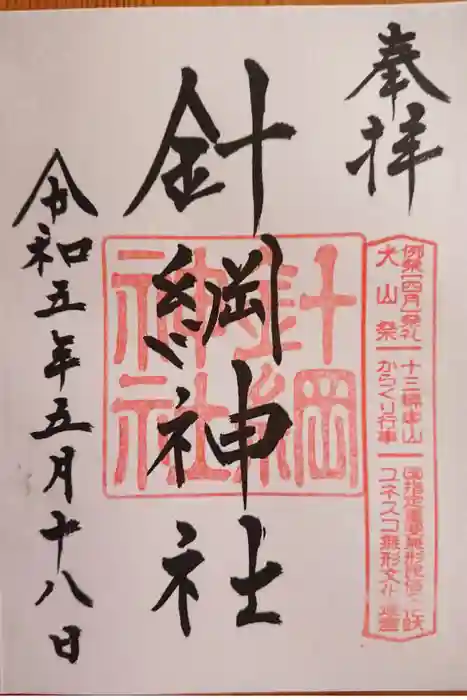 奉拝
例祭[四月]祭礼
犬山祭
十三輌車山
からくり行事
国指定重要無形民俗文化財
ユネスコ無形文化遺産
針綱神社
針綱神社
令和五年五月十八日